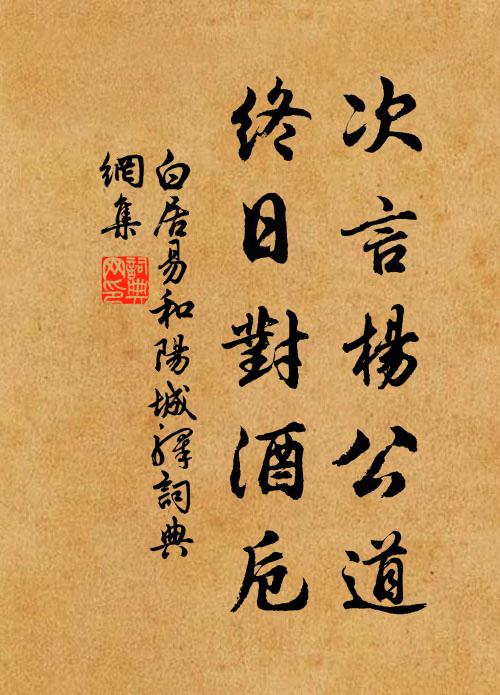 次言楊公道
終日對酒卮
白居易和陽城驛詞典
網集
詞典
网印